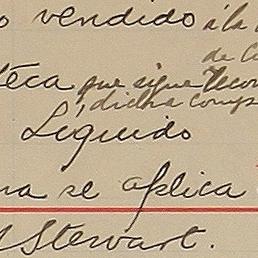 o vendido á la
de
teca que sigue
dicha comp
Líquido
na se aplica
Stewart.